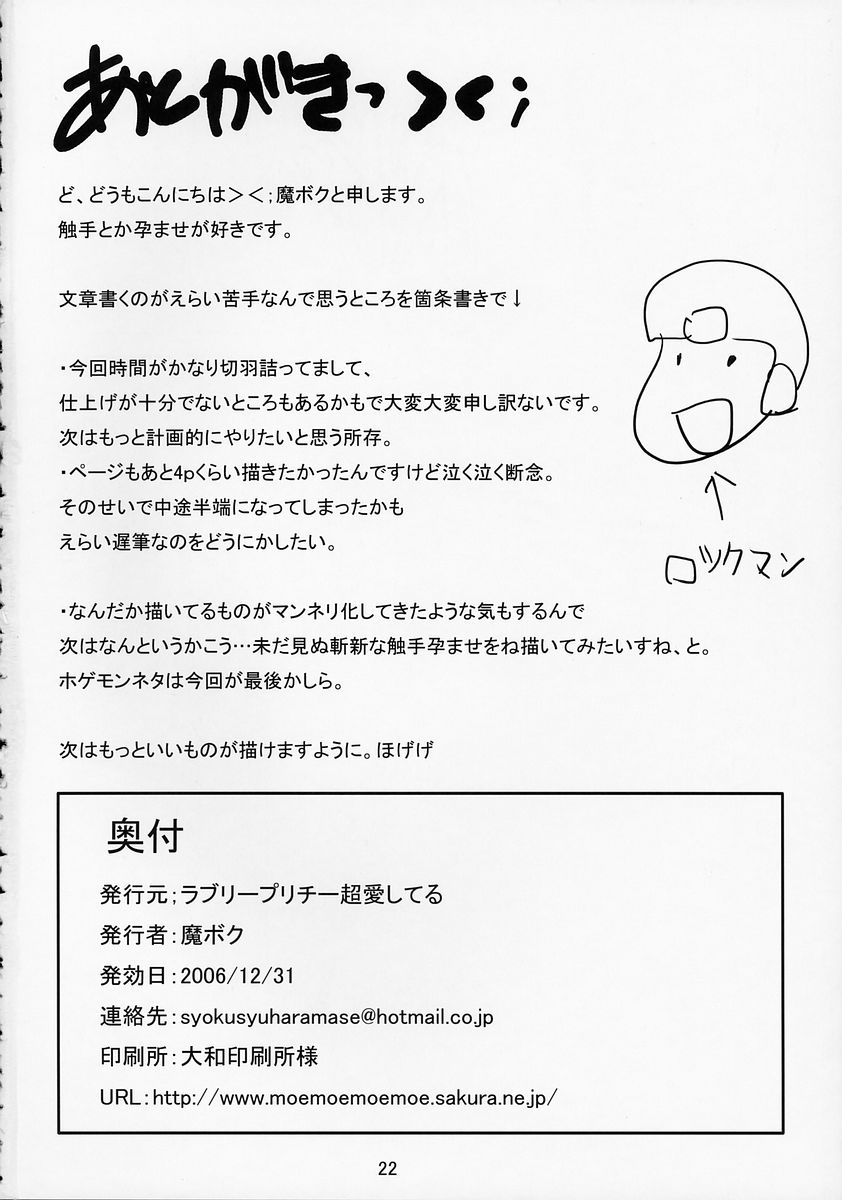 あとがきっ＞＜;
ど、どうもこんにちは＞＜;魔ボクと申します。
触手とか孕ませが好きです。
文章書くのがえらい苦手なんで思うところを箇条書きで↓
・今回時間がかなり切羽詰ってまして、
仕上げが十分でないところもあるかもで大変大変申し訳ないです。
次はもっと計画的にやりたいと思う所存。
・ページもあと4pくらい描きたかったんですけど泣く泣く断念。
そのせいで中途半端になってしまったかも
えらい遅筆なのをどうにかしたい。
ロックマン
・なんだか描いてるものがマンネリ化してきたような気もするんで
次はなんというかこう…未だ見ぬ斬新な触手孕ませをね描いてみたいすね、と。
ホゲモンネタは今回が最後かしら。
次はもっといいものが描けますように。ほげげ
奥付
発行元;ラブリープリチー超愛してる
発行者:魔ボク
発効日:2006/12/31
連絡先:syokusyuharamase@hotmail.co.jp
印刷所:大和印刷所様
URL:http://www.moemoemoemoe.sakura.ne.jp/
22